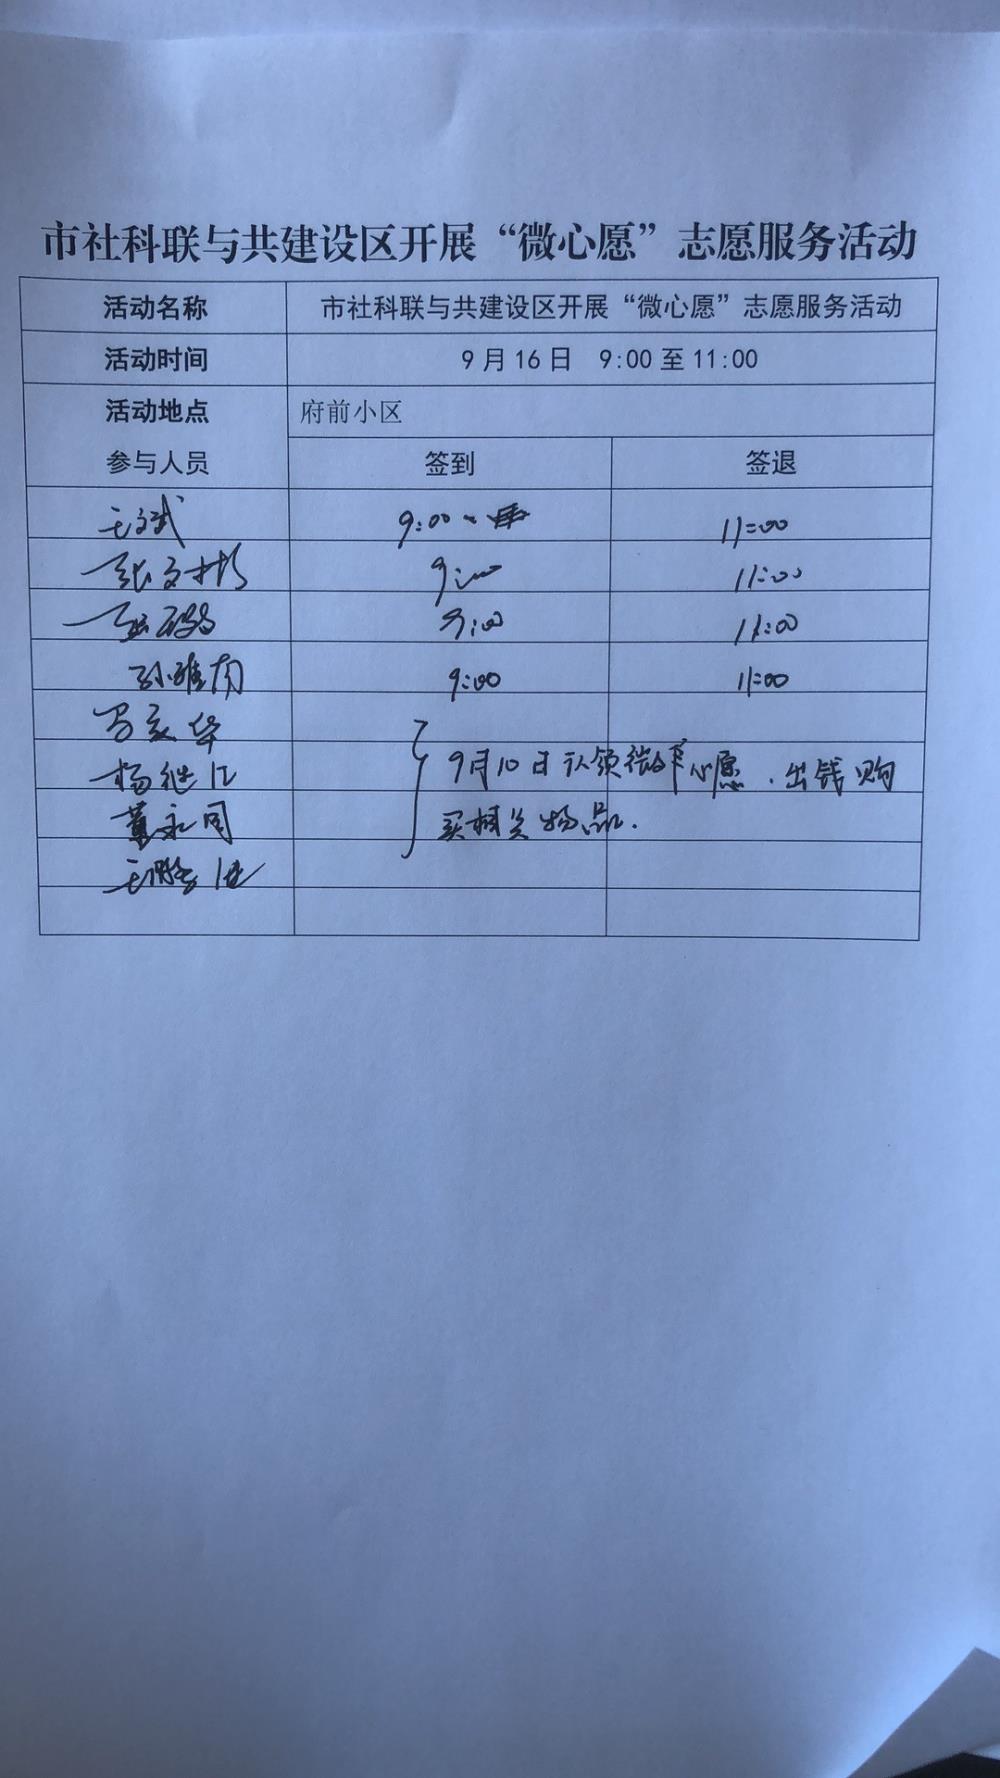 市社科联与共建设区开展“微心愿”志愿服务活动
活动名称 市社科联与共建设区开展“微心愿”志愿服务活动
活动时间 9月16日 9:00至11:00
活动地点 府前小区
参与人员 签到 签退
王文武 9:00 11:00
张文彬 9:00 11:00
9:00 11:00
孙雅南 9:00 11:00
华
杨继江 9月10日认领微心愿、出钱购
董永同 买相关物品.
王